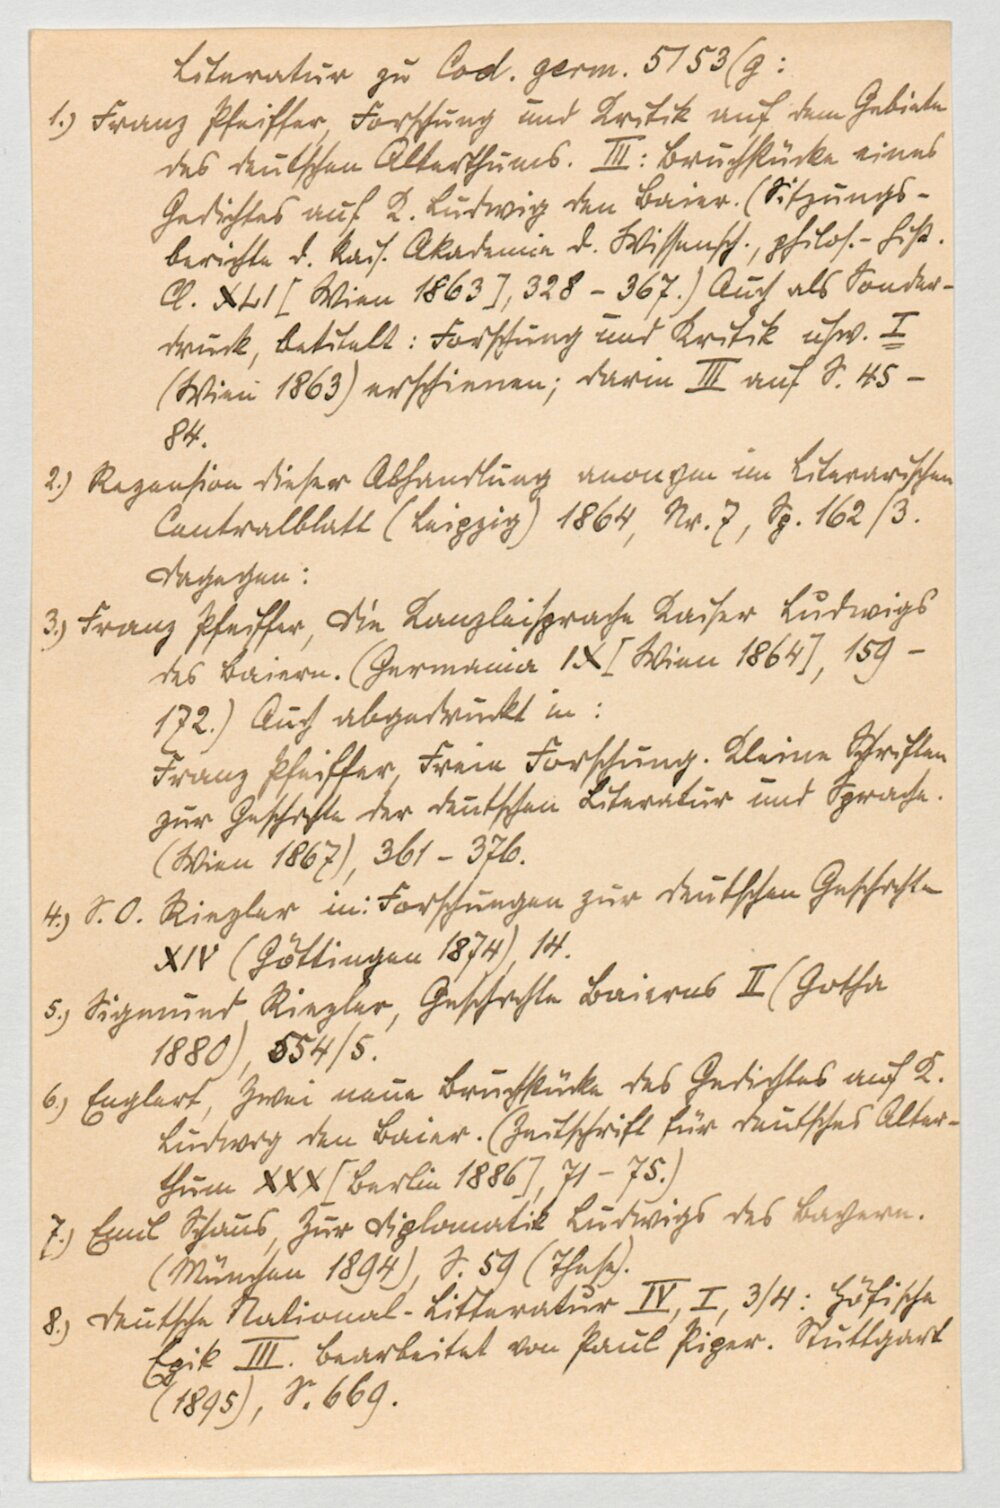 Literatur zu Cod. germ. 5153(g:
1.) Franz Pfeiffer, Forschung und Kritik auf dem Gebiete
des deutschen Alterthums. III: Bruchstücke eines
Gedichtes auf K. Ludwig den Baier. (Sitzungs-
berichte d. Kais. Akademie d. Wissensch., philos.-hist.
Cl. XLI [Wien 1863], 328 - 367.) Auch als Sonder-
druck, betitelt: Forschung und Kritik usw. I
(Wien 1863) erschienen; darin III auf S. 45 -
84.
2.) Rezension dieser Abhandlung anonym im Literarischen
Centralblatt (Leipzig) 1864, Nr. 7, Sp. 162/3.
Dagegen:
3.) Franz Pfeiffer, Die Kanzleisprache Kaiser Ludwigs
des Baiern. (Germania IX [Wien 1864], 159 -
172.) Auch abgedruckt in:
Franz Pfeiffer, Freie Forschung. Kleine Schriften
zur Geschichte der deutschen Literatur und Sprache.
(Wien 1867), 361 - 376.
4.) S. O. Riezler in: Forschungen zur deutschen Geschichte
XIV (Göttingen 1874), 14.
5.) Sigmund Riezler, Geschichte Baierns II (Gotha
1880), 554/5.
6.) Englert, Zwei neue Bruchstücke des Gedichtes auf K.
Ludwig den Baier. (Zeitschrift für deutsches Alter-
thum XXX [Berlin 1886], 71 - 75.)
7.) Emil Schaus, Zur Diplomatik Ludwigs des Bayern.
(München 1894), S. 59 (These).
8.) Deutsche National-Litteratur IV, I, 3/4: Höfische
Epik III. bearbeitet von Paul Piper. Stuttgart
(1895), S. 669.